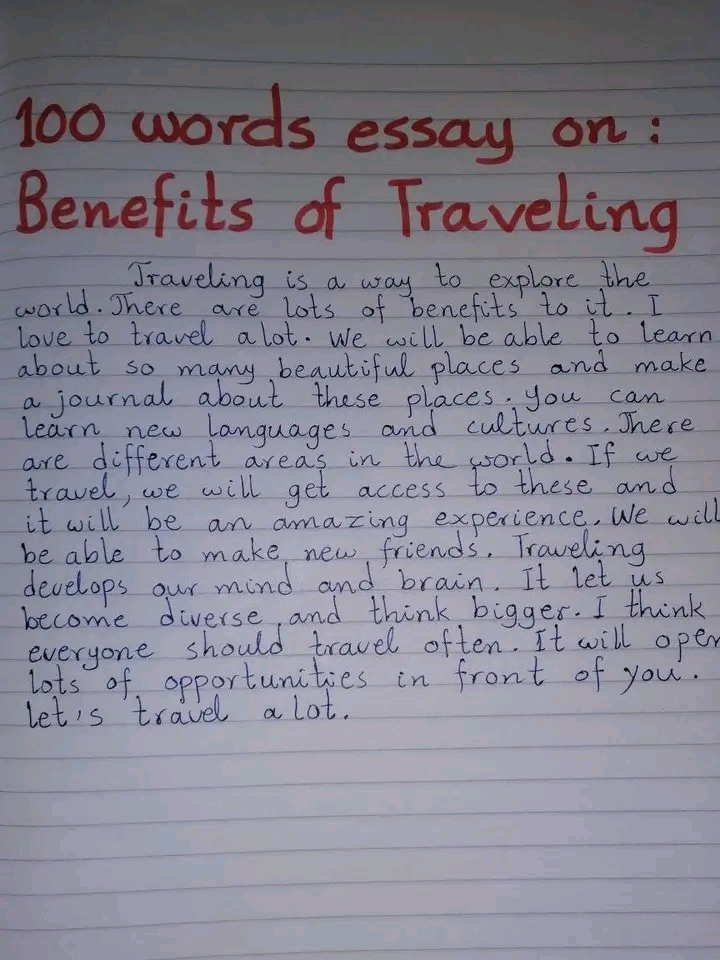 100 words essay on :
Benefits of Traveling
Traveling is a way to explore the
world. There are lots of benefits to it. I
love to travel a lot. We will be able to learn
about so many beautiful places and make
a journal about these places. You can
learn new languages and cultures. There
are different areas in the world. If we
travel, we will get access to these and
it will be an amazing experience. We will
be able to make new friends. Traveling
develops our mind and brain. It let us
become diverse and think bigger. I think
everyone should travel often. It will open
lots of opportunities in front of you.
let's travel a lot.